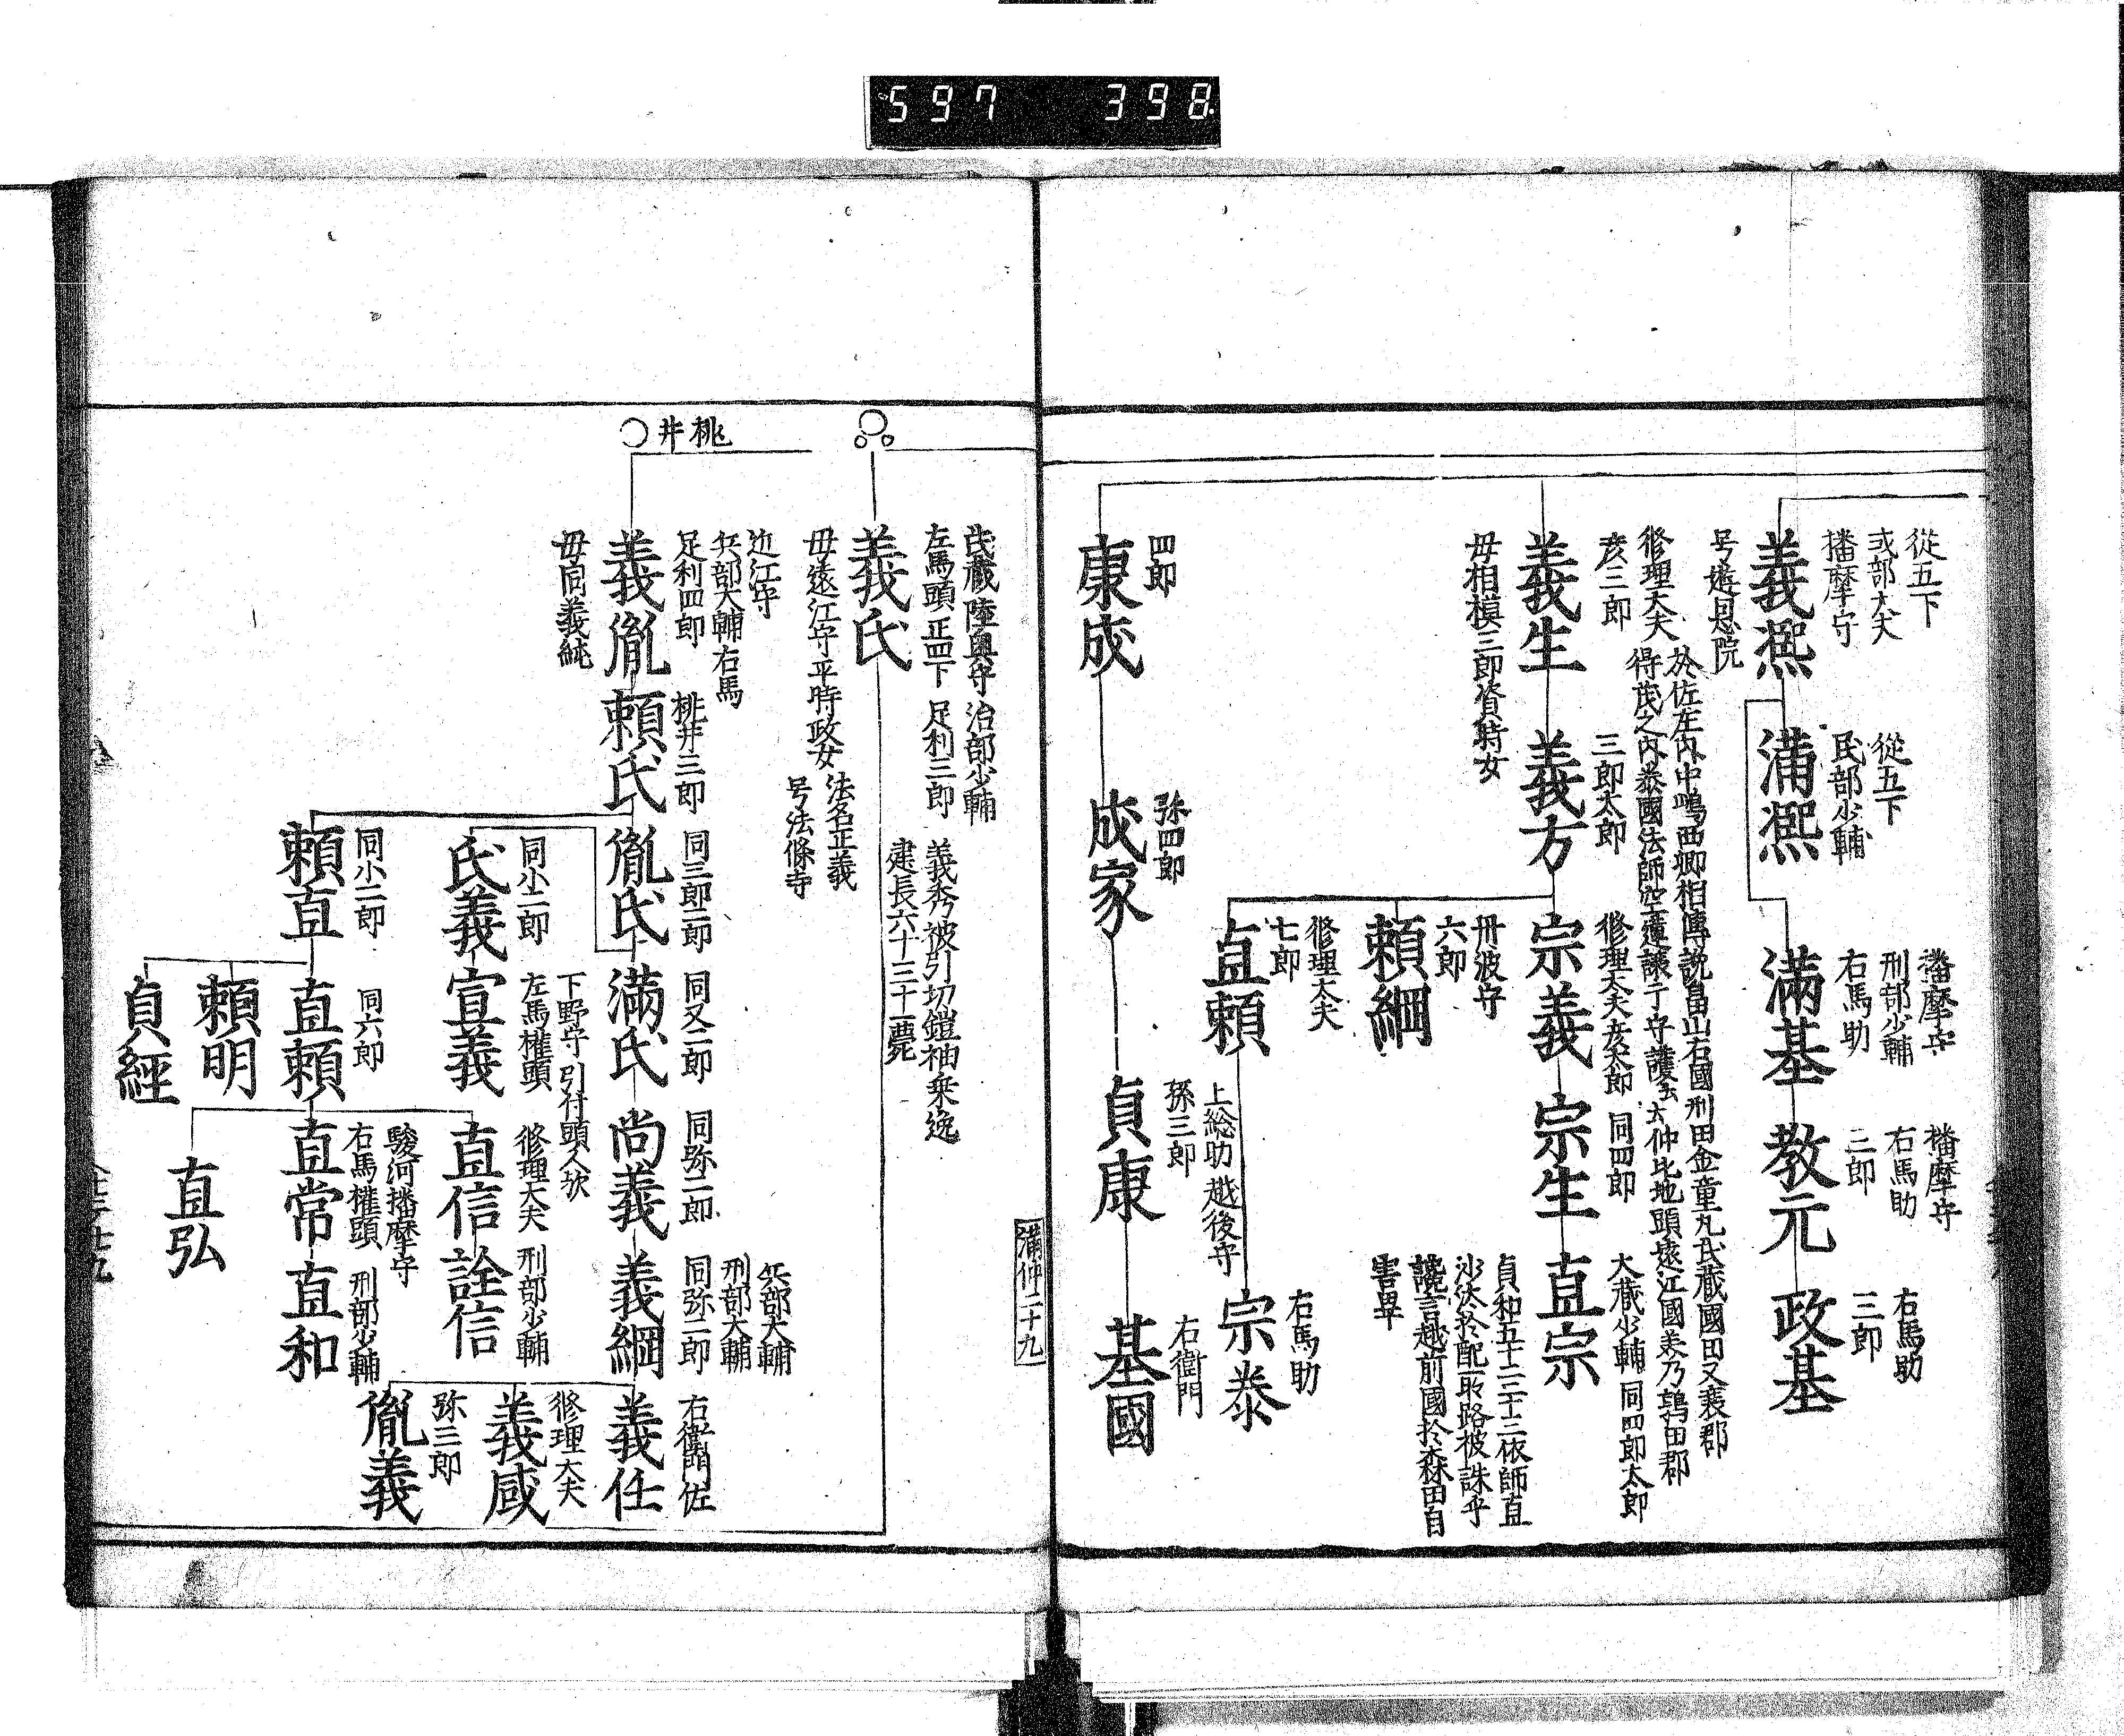 597 398
從五下
式部大夫
播摩守
義凞
号遠恩院
從五下
民部少輔
滿凞
播摩守
刑部少輔
右馬助
滿基
播摩守
右馬助
三郎
教元
右馬助
三郎
政基
修理大夫
彦三郎
義生
母相模三郎資時女
三郎太郎
義方
修理大夫彦太郎
宗義
同四郎
宗生
大藏少輔同四郎太郎
直宗
貞和五十二三十三依師直
讒言越前國於森田自
害畢
丹波守
六郎
頼綱
修理大夫
七郎
直頼
上総助越後守
右馬助
宗泰
四郎
康成
弥四郎
成家
孫三郎
貞康
右衛門
基國
滿仲二十九
武藏陸奥守治部少輔
左馬頭正四下足利三郎
義氏
母遠江守平時政女
法名正義
号法條寺
義秀被引切鎧袖乗逸
建長六十三十一薨
桃井
近江守
兵部大輔右馬
足利四郎
義胤
母同義純
桃井三郎
頼氏
同三郎二郎
胤氏
同又二郎
滿氏
同弥二郎
尚義
兵部大輔
刑部大輔
同弥二郎
義綱
右衛門佐
義任
修理大夫
義咸
弥三郎
胤義
同小二郎
氏義
下野守引付頭人欤
左馬權頭
宣義
修理大夫
直信
刑部少輔
詮信
同小二郎
頼直
同六郎
直頼
駿河播摩守
右馬權頭
直常
刑部少輔
直和
直弘
頼明
貞經